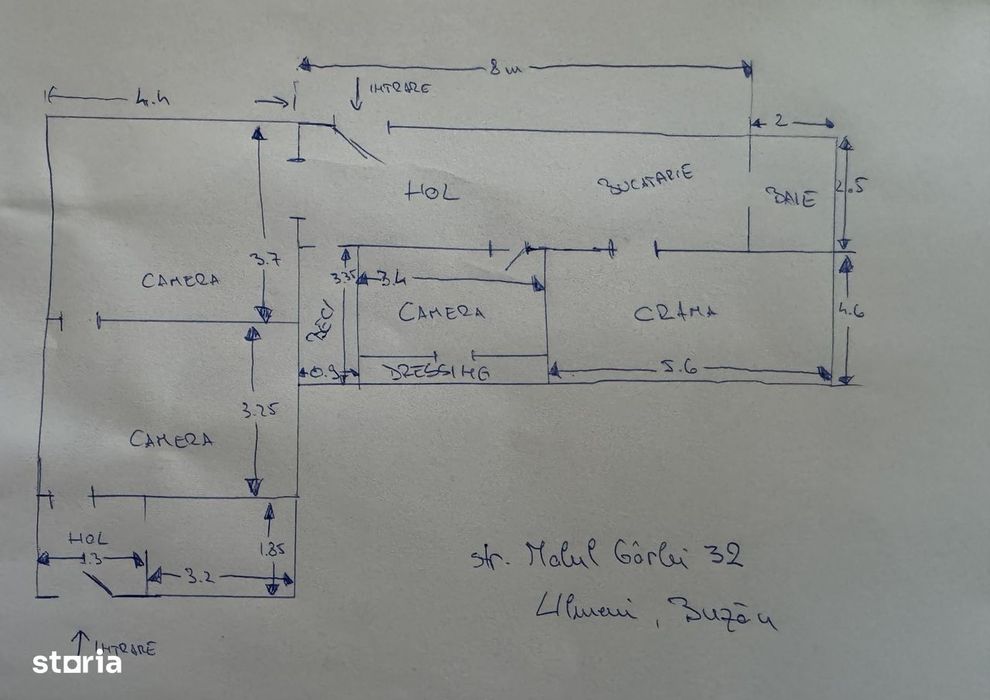 8 m
4.4
INTRARE
2
HOL
BUCATARIE
BAIE
2.5
3.7
CAMERA
3.35
3.4
CAMERA
CRAMA
4.6
BECI
0.9
DRESSING
5.6
3.25
CAMERA
HOL
1.3
3.2
1.85
str. Malul Gârlei 32
Ulmeni, Buzău
INTRARE
storia